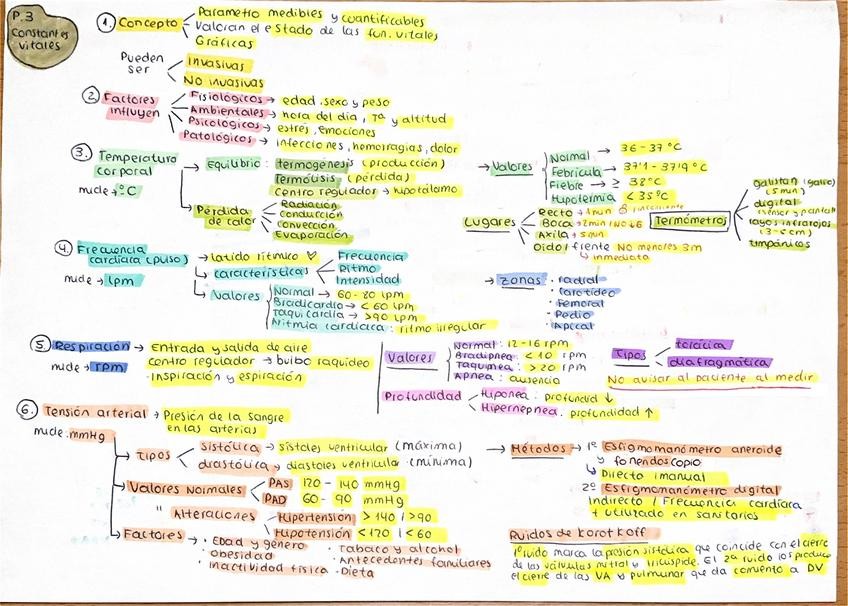 P.3
Constantes
vitales
1. Concepto
Parametro medibles y cuantificables
Valoran el estado de las fun. vitales
Gráficas
Pueden
ser
Invasivas
No invasivas
2. Factores
influyen
Fisiológicos → edad, sexo y peso
Ambientales → hora del día, Tª y altitud
Psicológicos → estrés, emociones
Patológicos → infecciones, hemorragias, dolor
3. Temperatura
corporal
mide → °C
Equilibrio: termogénesis (producción)
Termólisis (pérdida)
Centro regulador → hipotálamo
Pérdida
de calor
Radiación
Conducción
Convección
Evaporación
→ Valores
Normal → 36-37°C
Febrícula → 37'1-37'9°C
Fiebre → ≥ 38°C
Hipotermia < 35°C
Lugares
Recto → 1min
Boca → 2min (NO ↓6
Axila → 5min
Oido/frente NO menores 3m
↳ inmediata
Termómetros
galistan (galio)
(5min)
digital
(sensor y pantalla)
rayos infrarrojos
(3-5cm)
timpánicos
4. Frecuencia
cardíaca (pulso)
mide → lpm
→ latido rítmico ♡
→ características
Frecuencia
Ritmo
Intensidad
→ Valores
Normal → 60-80 lpm
Bradicardia → < 60 lpm
Taquicardia → > 90 lpm
Arritmia cardíaca: ritmo irregular
→ Zonas
· radial
· Carotídeo
· Femoral
· Pedio
· Apical
5. Respiración
mide → rpm
→ Entrada y salida de aire
Centro regulador → bulbo raquídeo
· Inspiración y espiración
Valores
Normal: 12-16 rpm
Bradipnea: < 10 rpm
Taquipnea: > 20 rpm
Apnea: ausencia
Tipos
torácica
diafragmática
No avisar al paciente al medir
Profundidad
Hiponea: profundid ↓
Hipernepnea: profundidad ↑
6. Tensión arterial → Presión de la sangre
en las arterias
mide: mmHg
→ Tipos
Sistólica → sístoles ventricular (máxima)
diastólica → diástoles ventricular (mínima)
→ Valores Normales
PAS 120-140 mmHg
PAD 60-90 mmHg
" Alteraciones
Hipertensión > 140 / > 90
Hipotensión < 120 / < 60
→ Factores →
· Edad y género
· obesidad
· inactividad física
· Tabaco y alcohol
· Antecedentes familiares
· Dieta
→ Métodos → 1º Esfigmomanómetro aneroide
y fonendoscopio
↳ Directo / manual
2º Esfigmomanómetro digital
Indirecto / Frecuencia cardíaca
+ utilizado en sanitarios
Ruidos de Korotkoff
1º ruido marca la presión sistólica que coincide con el cierre
de las válvulas mitral y tricúspide. El 2º ruido los produce
el cierre de las VA y pulmonar que da comienzo a DV